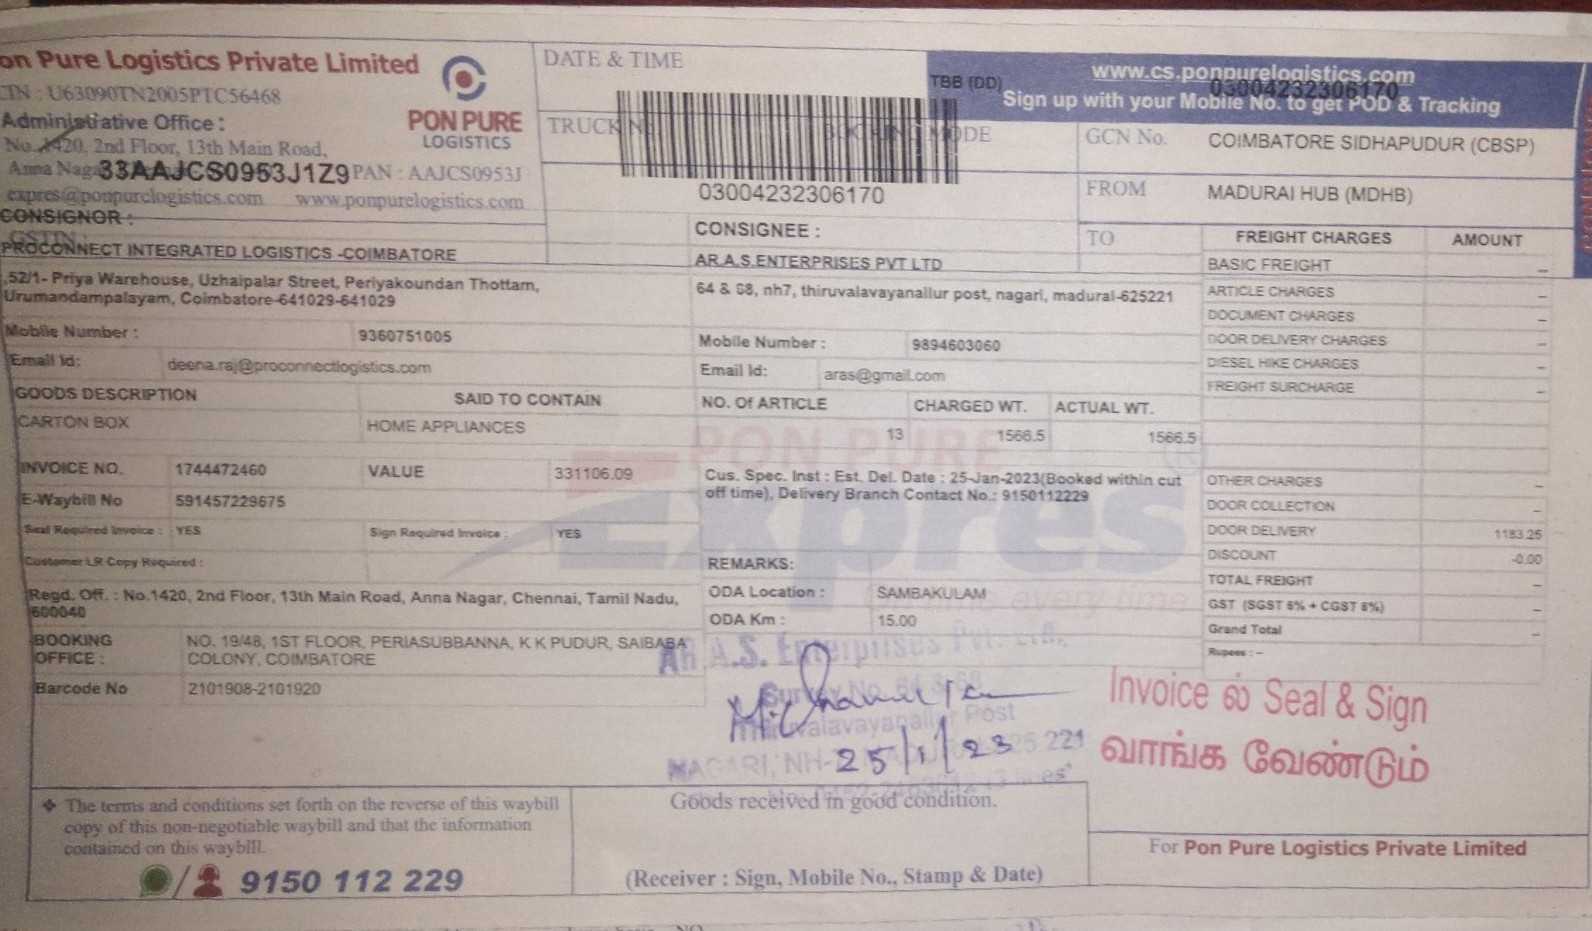 on Pure Logistics Private Limited
CIN : U63090TN2005PTC56468
Administrative Office :
No. 1420, 2nd Floor, 13th Main Road,
Anna Naga 33AAJCS0953J1Z9 PAN : AAJCS0953J
expres@ponpurelogistics.com www.ponpurelogistics.com
PON PURE
LOGISTICS
DATE & TIME
TRUCK N
MODE
03004232306170
TBB (DD)
www.cs.ponpurelogistics.com
03004232306170
Sign up with your Mobile No. to get POD & Tracking
GCN No. COIMBATORE SIDHAPUDUR (CBSP)
FROM MADURAI HUB (MDHB)
TO
CONSIGNOR :
GSTIN
PROCONNECT INTEGRATED LOGISTICS -COIMBATORE
,52/1- Priya Warehouse, Uzhaipalar Street, Periyakoundan Thottam,
Urumandampalayam, Coimbatore-641029-641029
Mobile Number : 9360751005
Email Id: deena.raj@proconnectlogistics.com
CONSIGNEE :
AR.A.S.ENTERPRISES PVT LTD
64 & 68, nh7, thiruvalavayanallur post, nagari, madurai-625221
Mobile Number : 9894603060
Email Id: aras@gmail.com
GOODS DESCRIPTION SAID TO CONTAIN
CARTON BOX HOME APPLIANCES
NO. Of ARTICLE CHARGED WT. ACTUAL WT.
13 1566.5 1566.5
INVOICE NO. 1744472460 VALUE 331106.09
E-Waybill No 591457229675
Seal Required Invoice : YES Sign Required Invoice : YES
Customer LR Copy Required :
Cus. Spec. Inst : Est. Del. Date : 25-Jan-2023(Booked within cut
off time), Delivery Branch Contact No.: 9150112229
REMARKS:
ODA Location : SAMBAKULAM
ODA Km : 15.00
PON PURE
Expres
every time
Regd. Off. : No.1420, 2nd Floor, 13th Main Road, Anna Nagar, Chennai, Tamil Nadu,
600040
BOOKING OFFICE : NO. 19/48, 1ST FLOOR, PERIASUBBANNA, K K PUDUR, SAIBABA
COLONY, COIMBATORE
Barcode No 2101908-2101920
FREIGHT CHARGES AMOUNT
BASIC FREIGHT -
ARTICLE CHARGES -
DOCUMENT CHARGES -
DOOR DELIVERY CHARGES -
DIESEL HIKE CHARGES -
FREIGHT SURCHARGE -
OTHER CHARGES -
DOOR COLLECTION -
DOOR DELIVERY 1183.25
DISCOUNT -0.00
TOTAL FREIGHT -
GST (SGST 6% + CGST 6%) -
Grand Total -
Rupees : -
AR.A.S. Enterprises Pvt. Ltd.,
Survey No. 64 & 68
Thiruvalavayanallur Post
NAGARI, NH- 625 221
25/1/23
Invoice ல் Seal & Sign
வாங்க வேண்டும்
❖ The terms and conditions set forth on the reverse of this waybill
copy of this non-negotiable waybill and that the information
contained on this waybill.
/ 9150 112 229
Goods received in good condition.
(Receiver : Sign, Mobile No., Stamp & Date)
For Pon Pure Logistics Private Limited